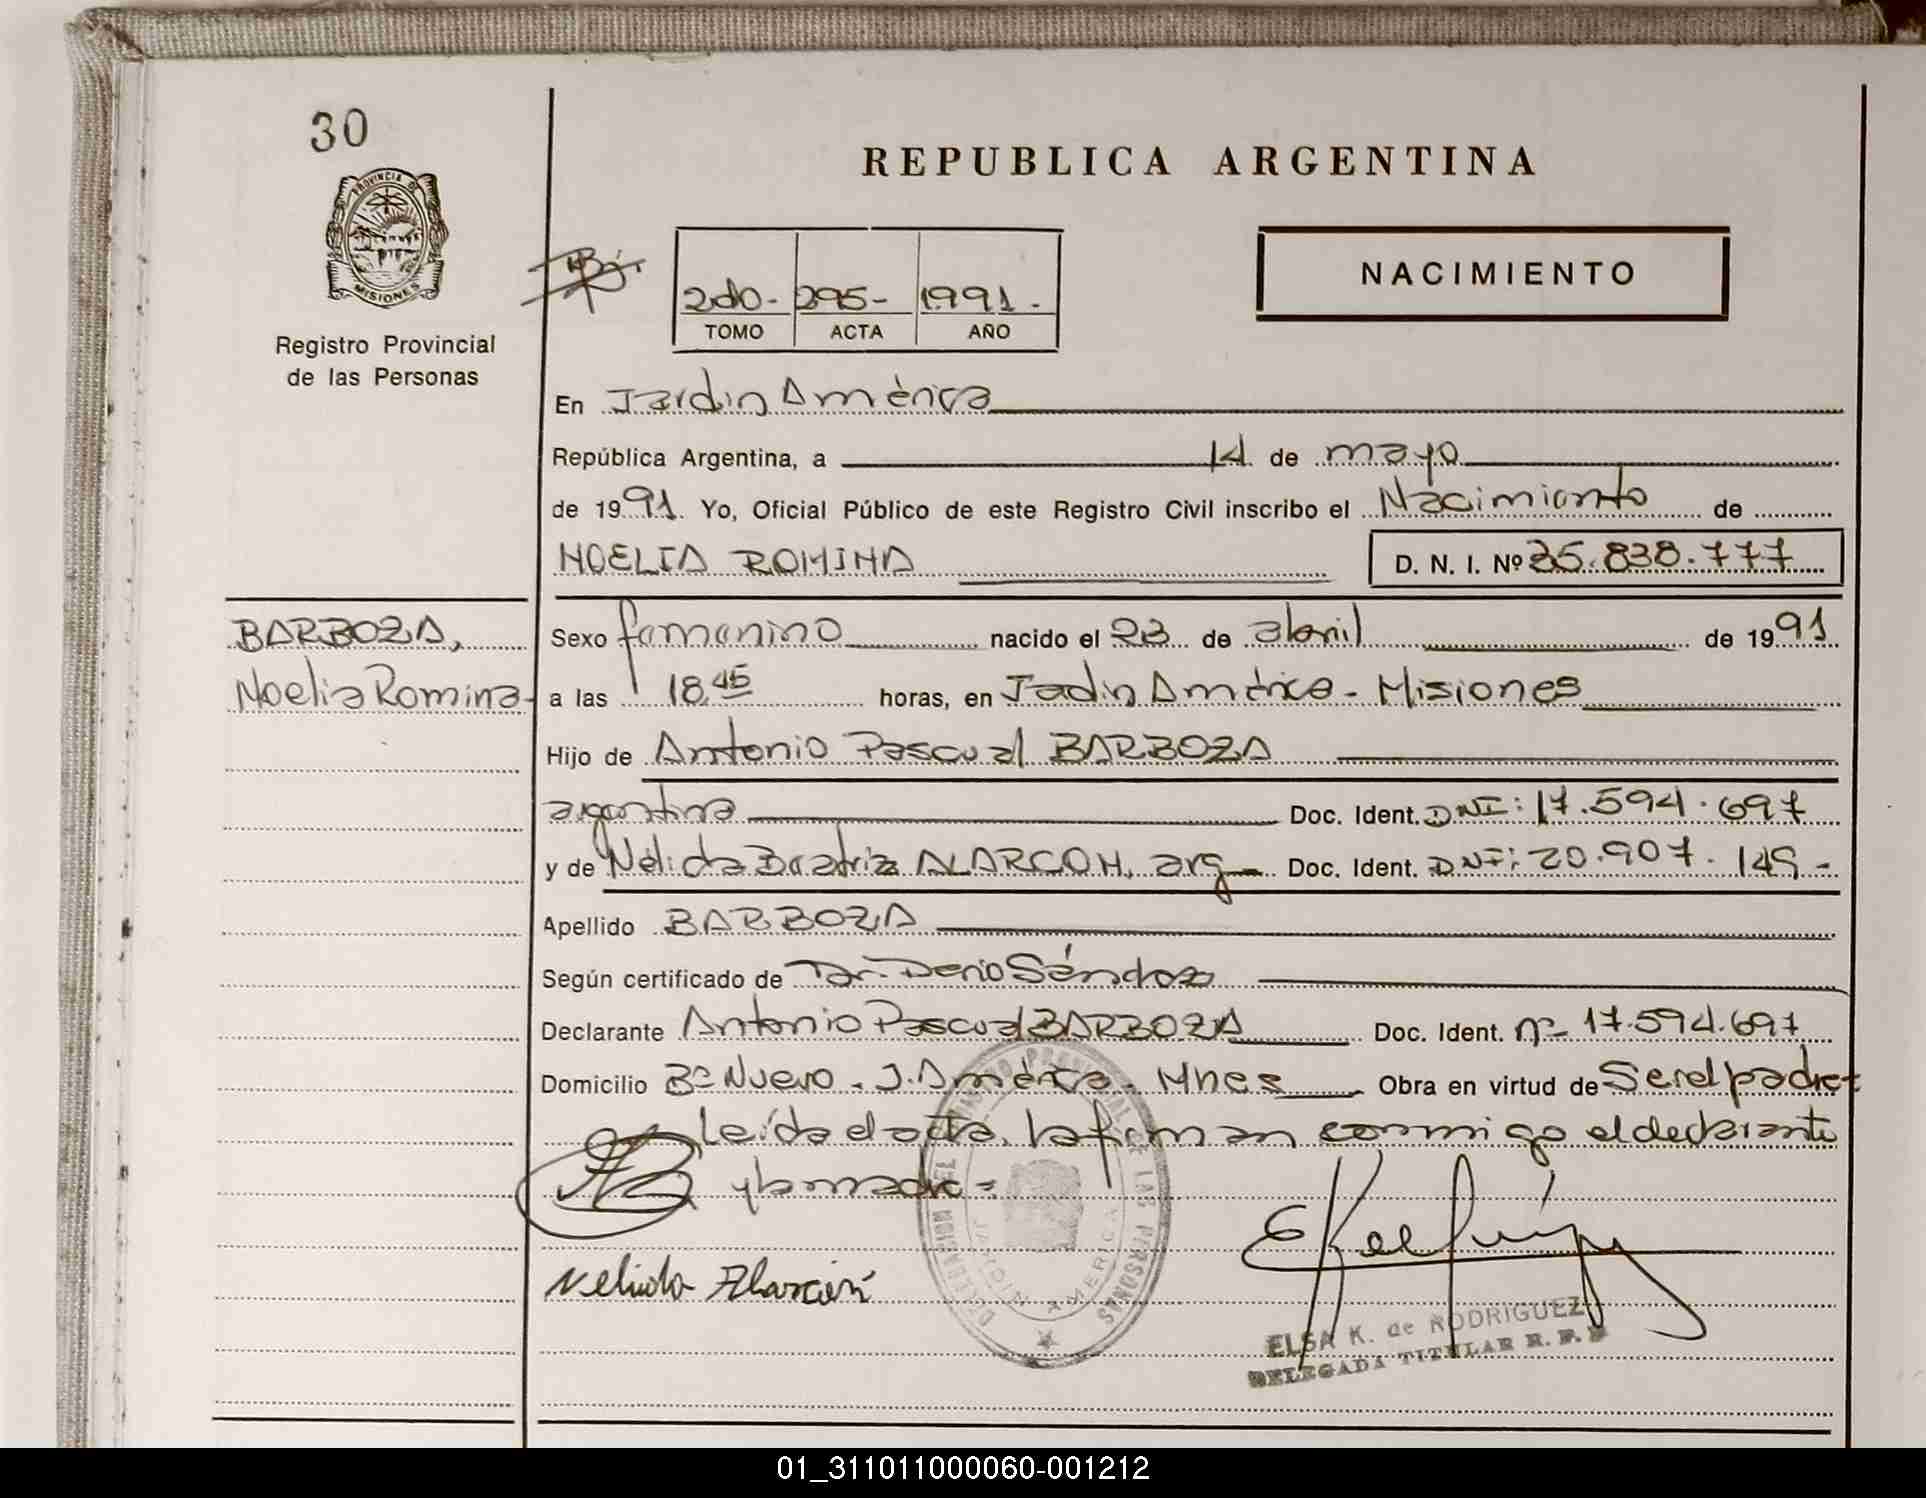 30
PROVINCIA DE
MISIONES
Registro Provincial
de las Personas
REPUBLICA ARGENTINA
2do- 295- 1991-
TOMO ACTA AÑO
NACIMIENTO
En Jardin América
República Argentina, a 14 de mayo
de 1991. Yo, Oficial Público de este Registro Civil inscribo el Nacimiento de
NOELIA ROMINA D. N. I. Nº 35.838.777
BARBOZA,
Noelia Romina-
Sexo femenino nacido el 23 de abril de 1991
a las 18,45 horas, en Jadin América - Misiones
Hijo de Antonio Pascual BARBOZA
argentina Doc. Ident. DNI: 17.594.697
y de Nélida Beatriz ALARCON, arg Doc. Ident. DNI: 20.907.149-
Apellido BARBOZA
Según certificado de Dr. Dario
Declarante Antonio Pascual BARBOZA Doc. Ident. nº 17.594.697
Domicilio Bº Nuevo - J. América - Mnes Obra en virtud de Ser el padre
Leída el acta, la firman conmigo el declarante
y la madre-
Nelida Alarcón
DELEGACION DEL REGISTRO PROVINCIAL DE LAS PERSONAS
JARDIN AMERICA
ELSA K. de RODRIGUEZ
DELEGADA TITULAR R. P. P
01_311011000060-001212